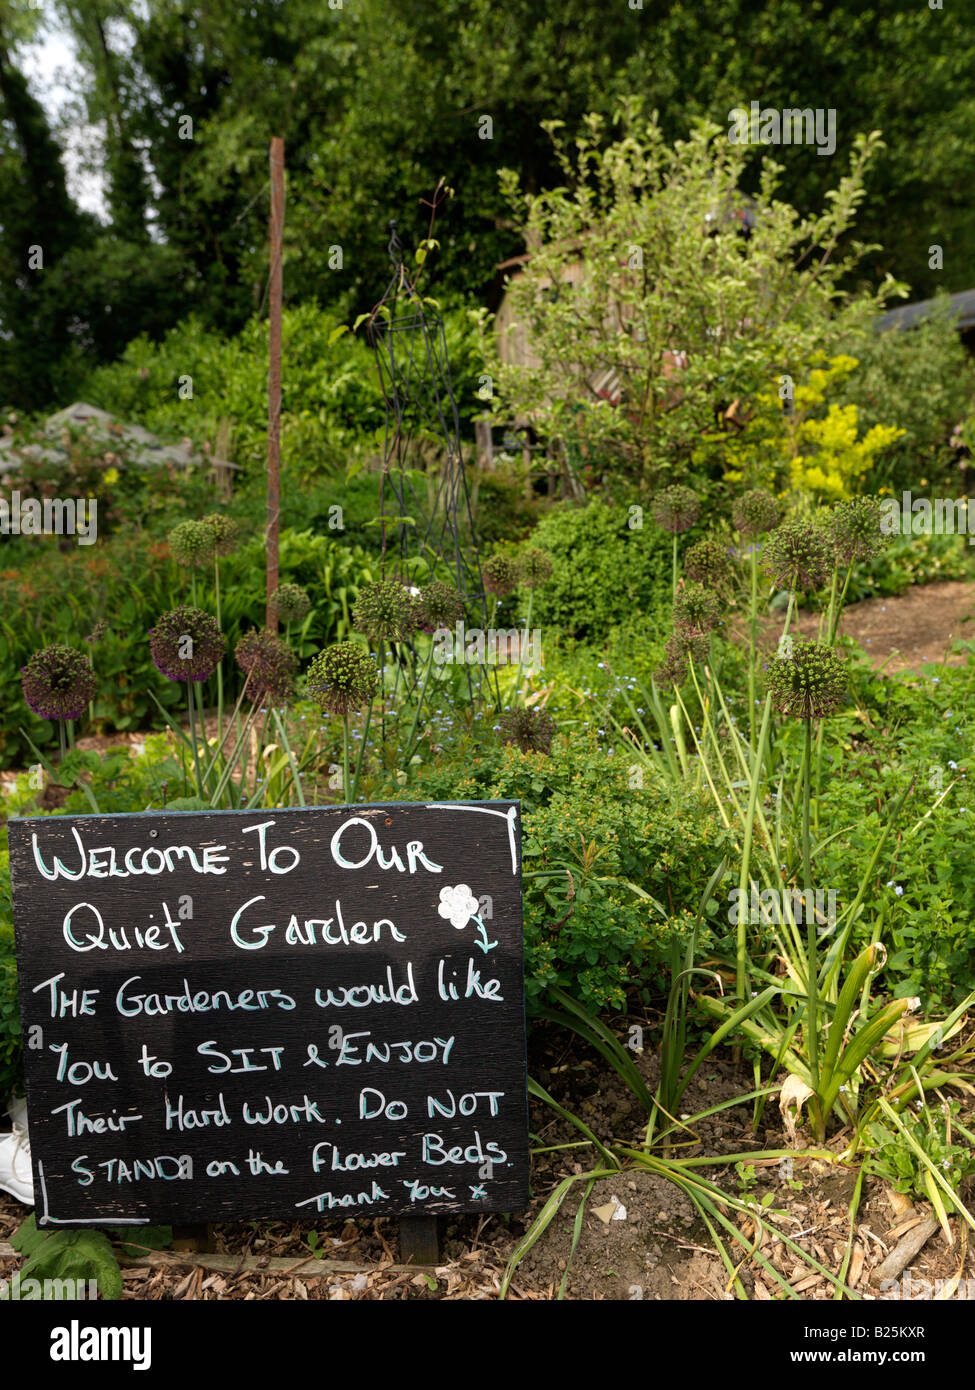 WELCOME TO OUR
Quiet Garden
THE Gardeners would like
You to SIT & ENJOY
Their Hard Work. Do NOT
STAND on the Flower Beds.
Thank You x
alamy
alamy
Image ID: B25KXR
www.alamy.com